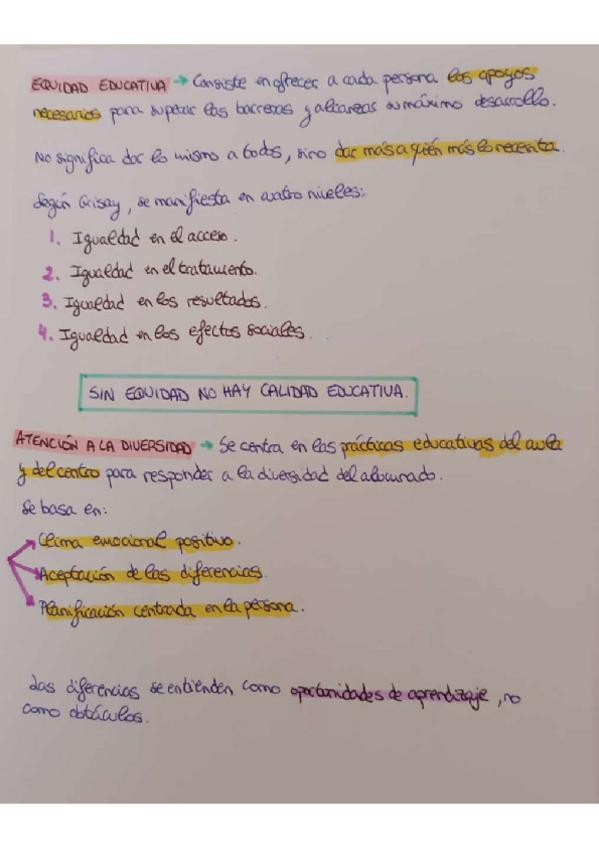 EQUIDAD EDUCATIVA → Consiste en ofrecer a cada persona los apoyos
necesarios para superar las barreras y alcanzar su máximo desarrollo.
No significa dar lo mismo a todos, sino dar más a quién más lo necesita.
Según Grisay, se manifiesta en cuatro niveles:
1. Igualdad en el acceso.
2. Igualdad en el tratamiento.
3. Igualdad en los resultados.
4. Igualdad en los efectos sociales.
SIN EQUIDAD NO HAY CALIDAD EDUCATIVA.
ATENCIÓN A LA DIVERSIDAD → Se centra en las prácticas educativas del aula
y del centro para responder a la diversidad del alumnado.
Se basa en:
Clima emocional positivo.
Aceptación de las diferencias.
Planificación centrada en la persona.
Las diferencias se entienden como oportunidades de aprendizaje, no
como obstáculos.